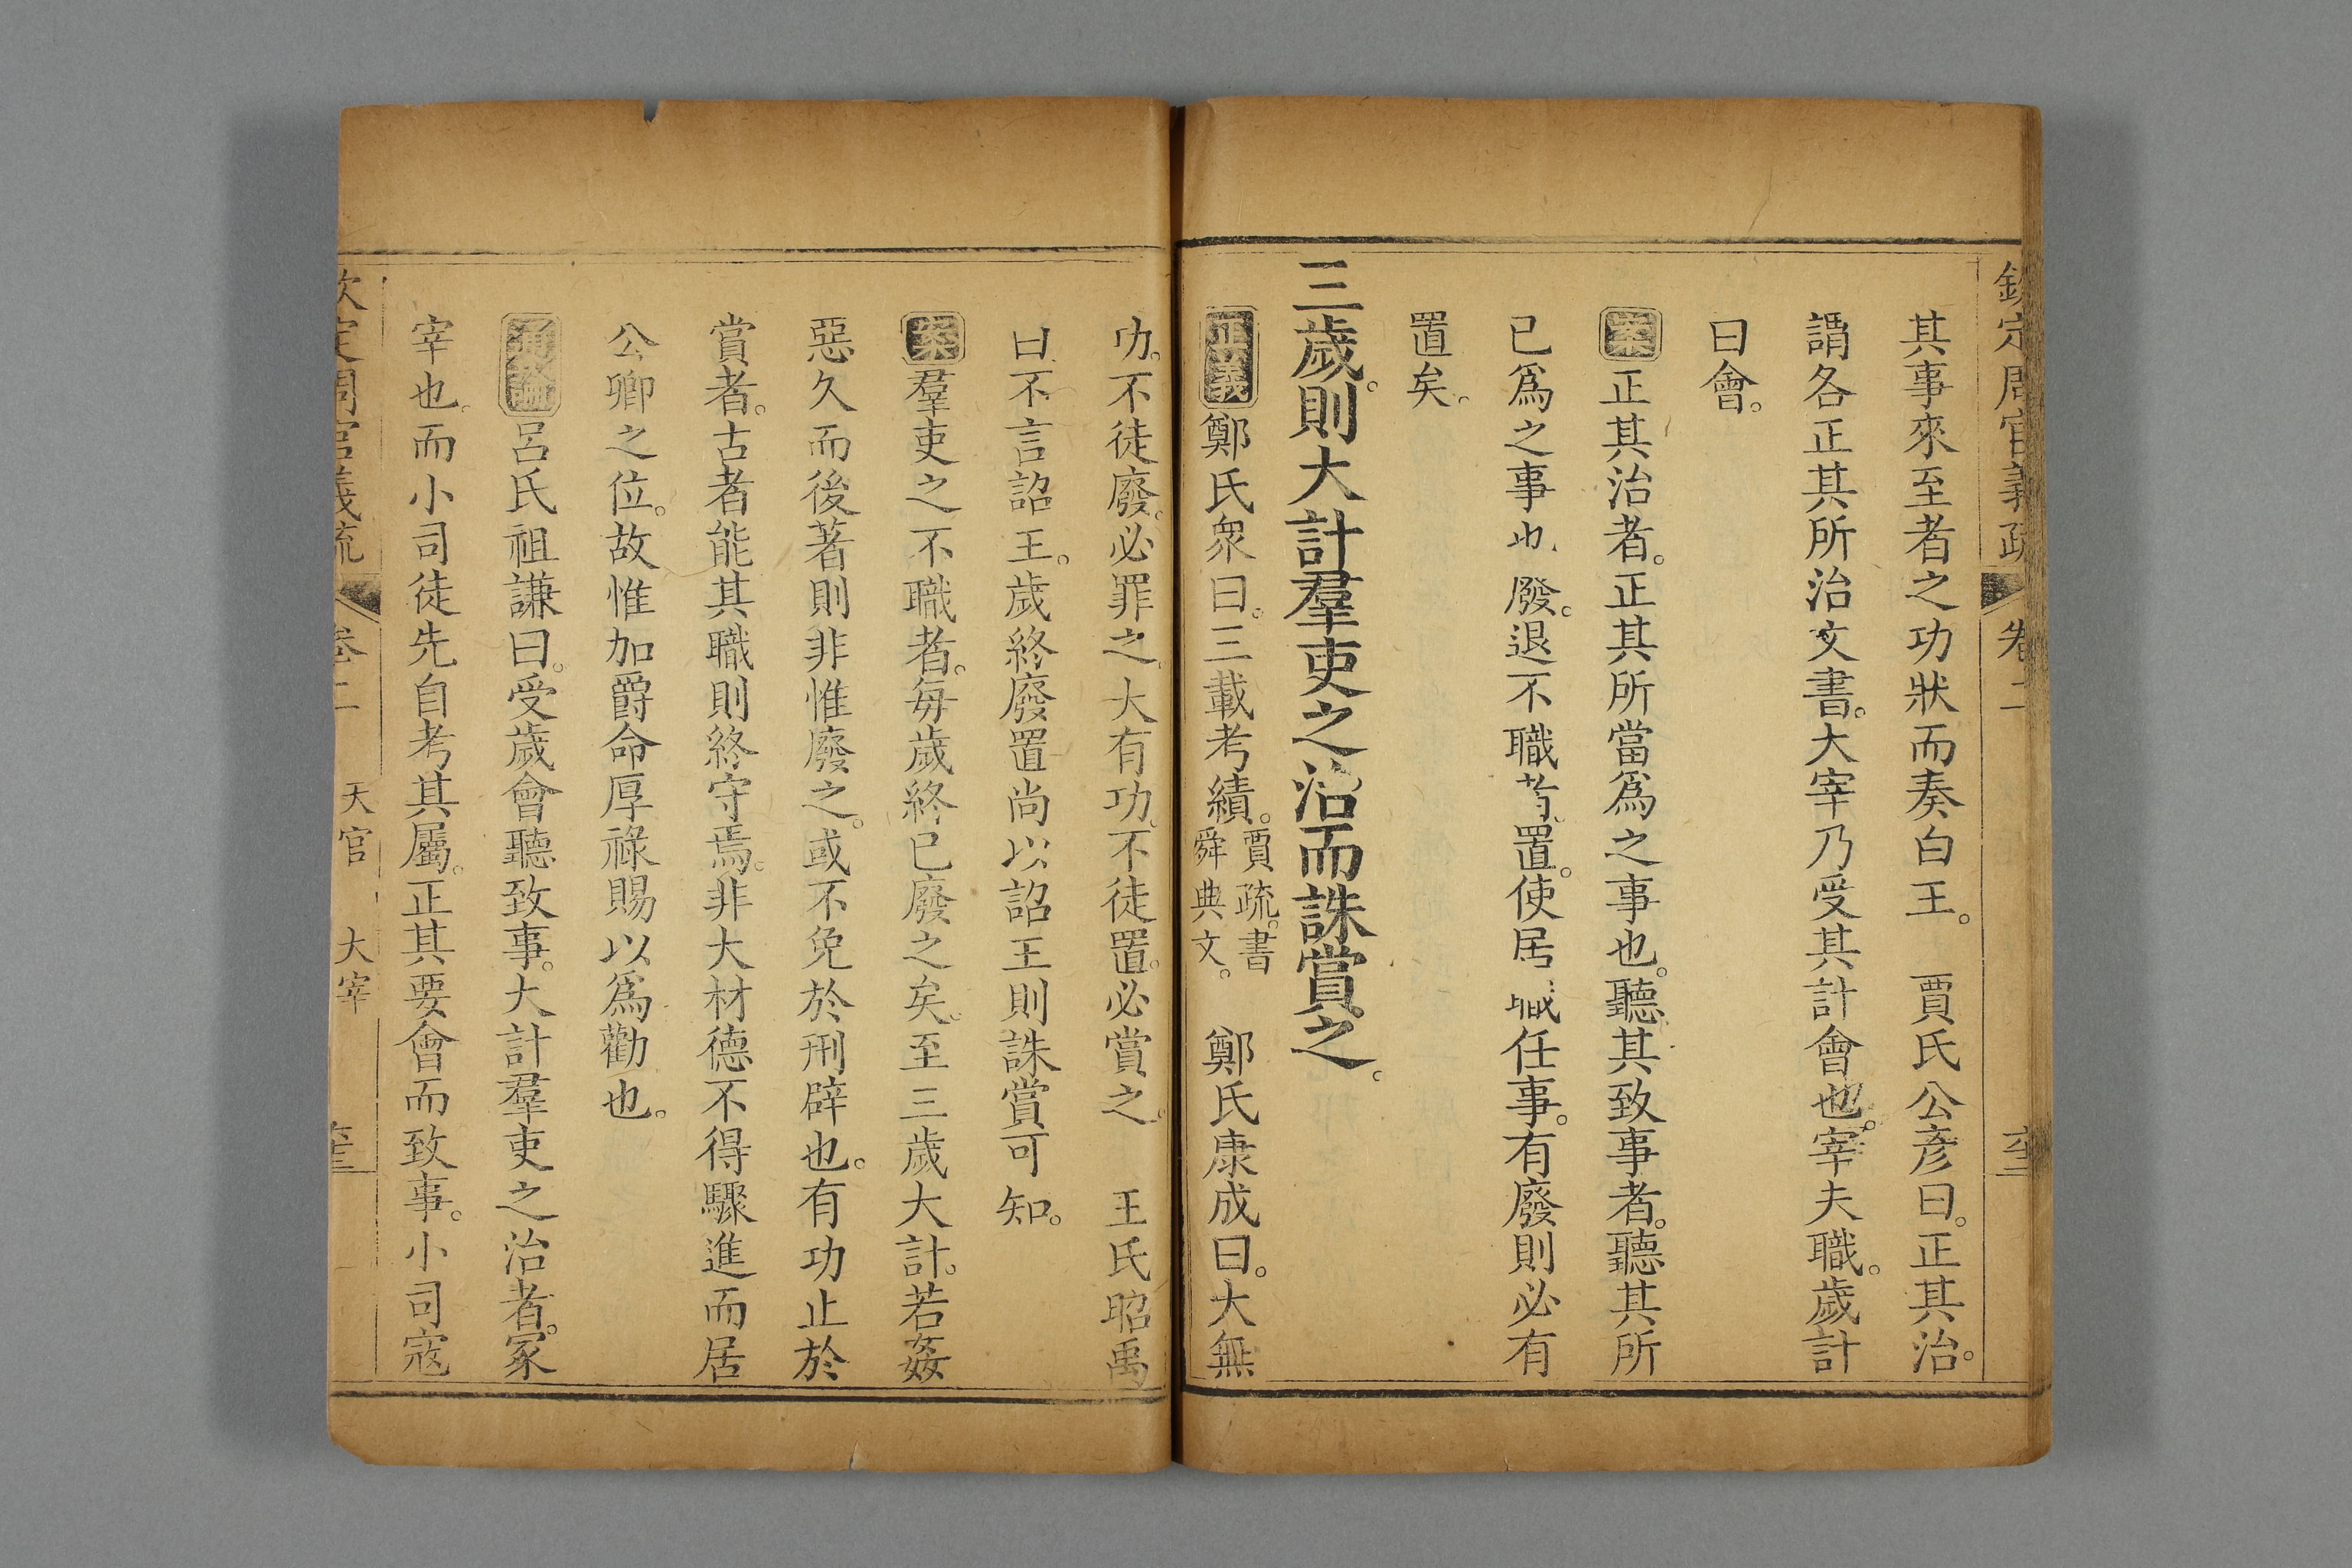 欽定周官義疏 卷二
其事來至者之功狀而奏白王。 賈氏公彥曰。正其治。
謂各正其所治文書。大宰乃受其計會也。宰夫職。歲計
曰會。
案正其治者。正其所當爲之事也。聽其致事者。聽其所
已爲之事也。廢。退不職者。置。使居職任事。有廢則必有
置矣。
三歲。則大計羣吏之治而誅賞之。
正義鄭氏衆曰。三載考績。賈疏。書舜典文。 鄭氏康成曰。大無
功。不徒廢。必罪之。大有功。不徒置。必賞之。 王氏昭禹
曰不言詔王。歲終廢置尚以詔王則誅賞可知。
案羣吏之不職者。每歲終已廢之矣。至三歲大計。若姦
惡久而後著則非惟廢之。或不免於刑辟也。有功止於
賞者。古者能其職則終守焉。非大材德不得驟進而居
公卿之位。故惟加爵命厚祿賜以爲勸也。
通論呂氏祖謙曰。受歲會聽致事。大計羣吏之治者。冢
宰也。而小司徒先自考其屬。正其要會而致事。小司寇
欽定周官義疏 卷二 天官 大宰